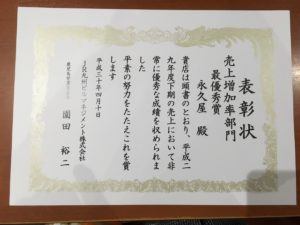 表彰状
売上増加率部門
最優秀賞
永久屋 殿
貴店は頭書のとおり、平成二
九年度下期の売上において非
常に優秀な成績を収められま
した
平素の努力をたたえこれを賞
します
平成三十年四月十日
JR九州ビルマネジメント株式会社
園田 裕二